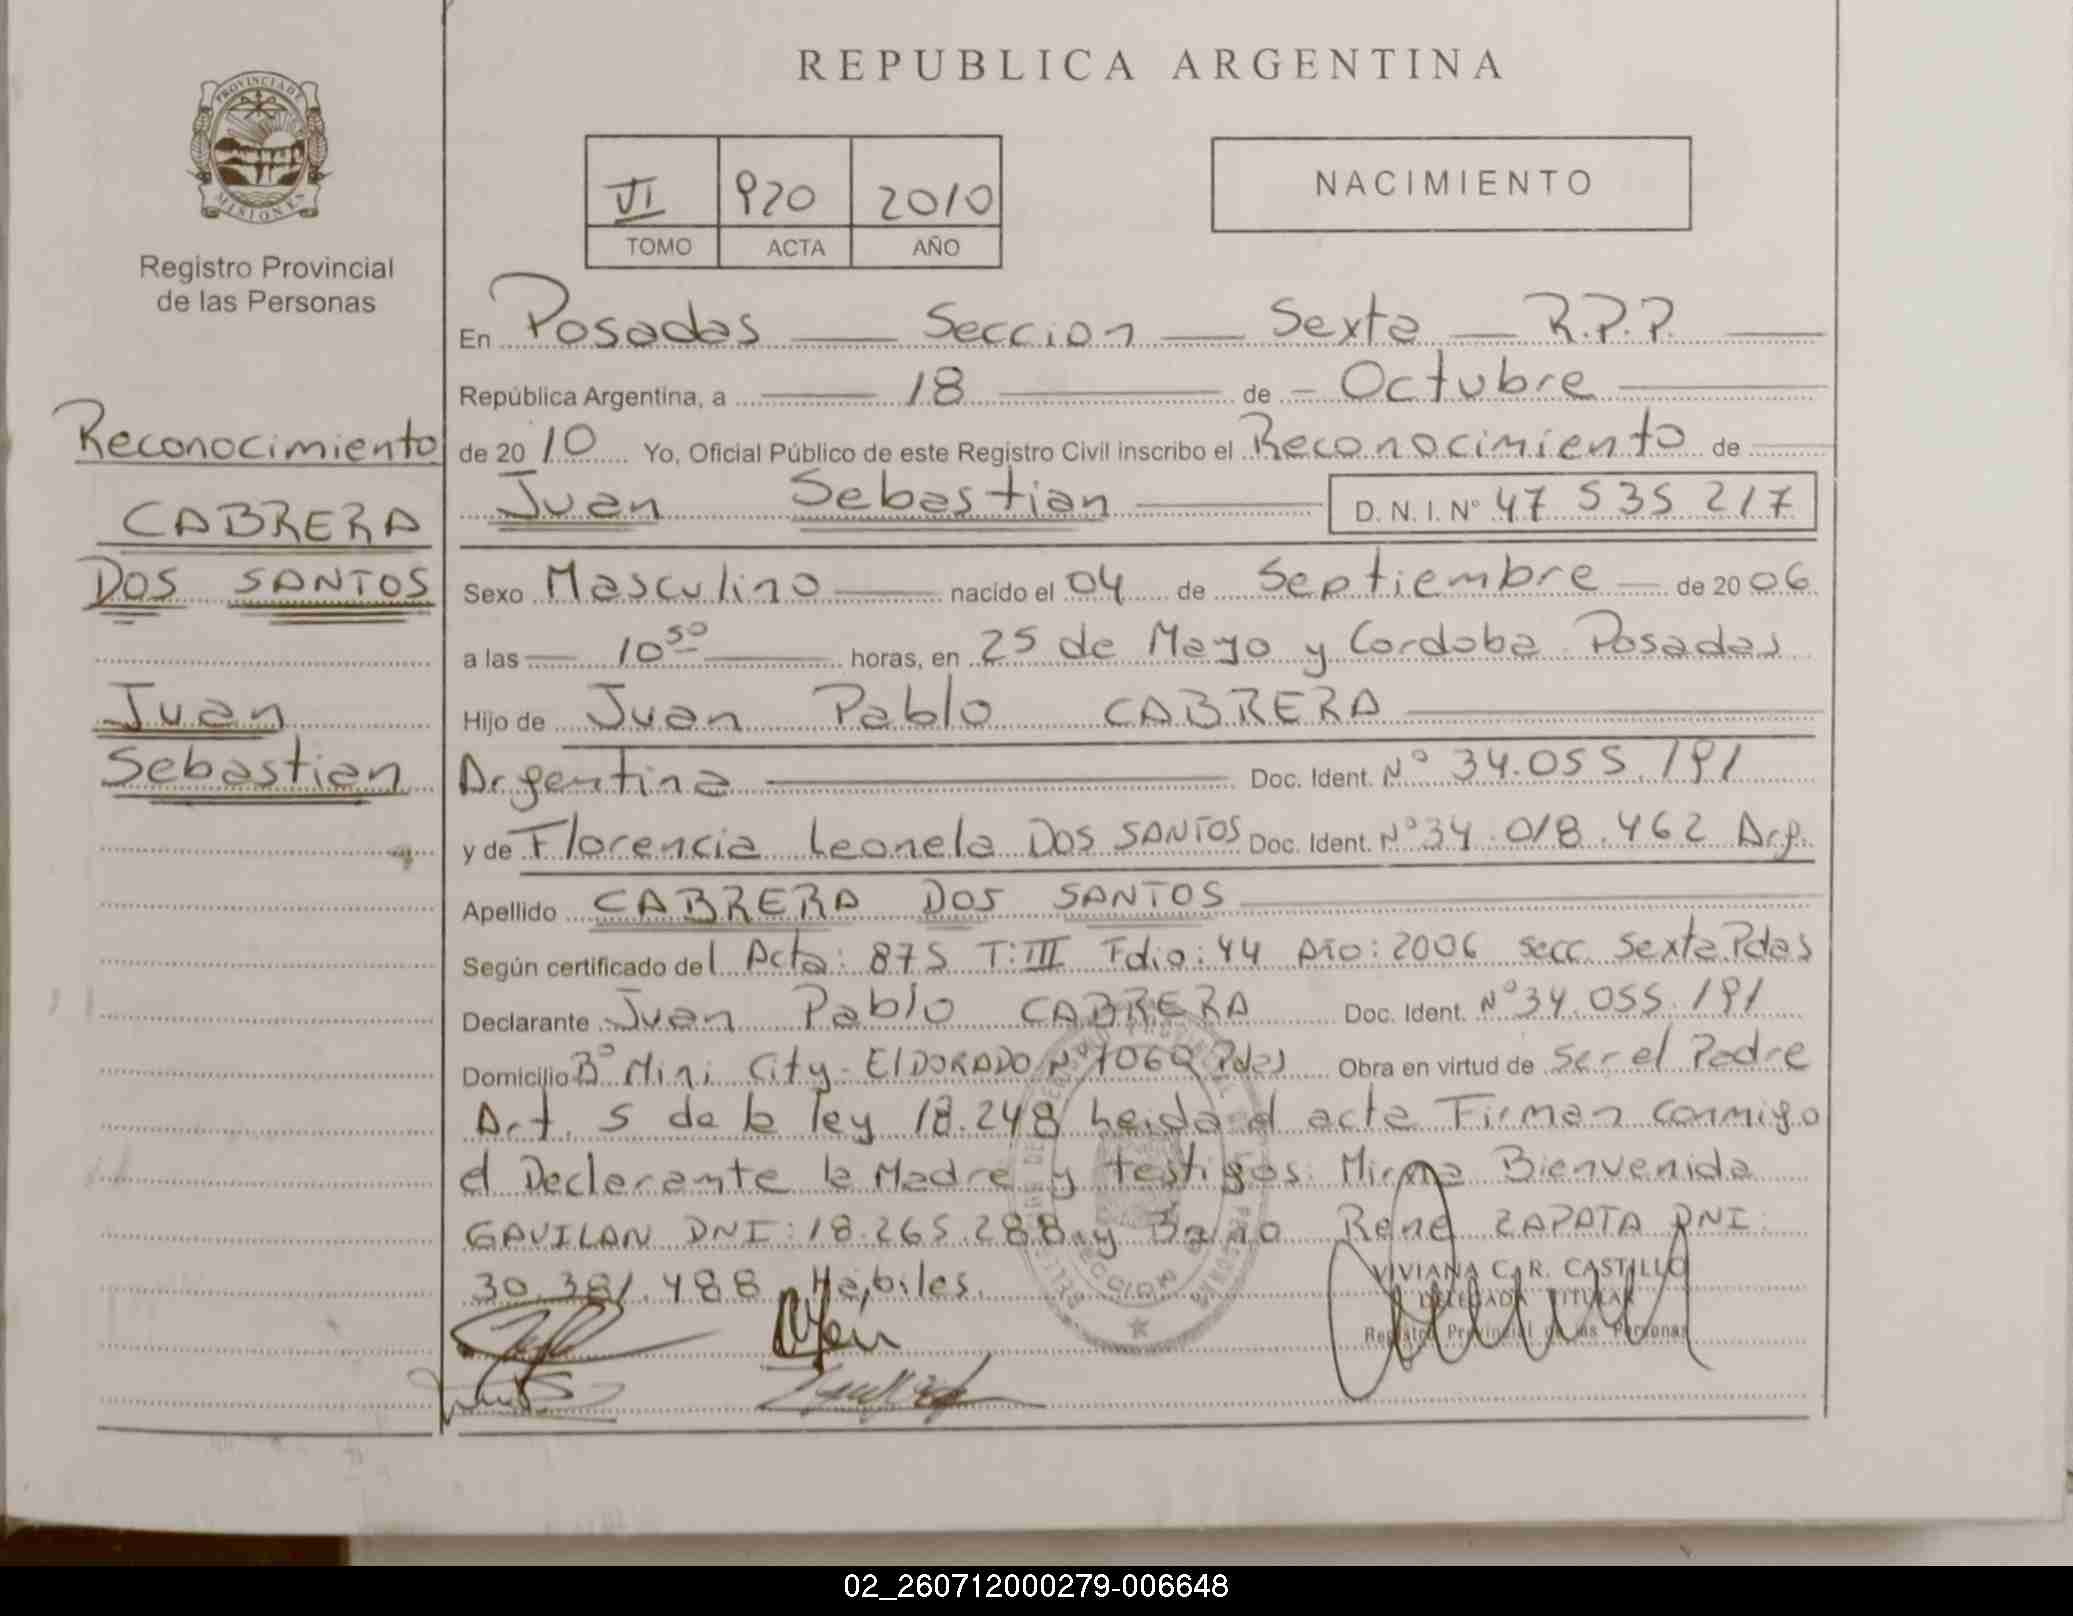 REPUBLICA ARGENTINA
PROVINCIA DE
MISIONES
Registro Provincial
de las Personas
VI 920 2010
TOMO ACTA AÑO
NACIMIENTO
Reconocimiento
CABRERA
DOS SANTOS
Juan
Sebastian
En Posadas — Seccion — Sexta — R.P.P. —
República Argentina, a — 18 — de — Octubre —
de 2010 Yo, Oficial Público de este Registro Civil inscribo el Reconocimiento de
Juan Sebastian — D. N. I. Nº 47 535 217
Sexo Masculino — nacido el 04 de Septiembre — de 2006
a las — 10 50 — horas, en 25 de Mayo y Cordoba Posadas
Hijo de Juan Pablo CABRERA —
Argentina — Doc. Ident. Nº 34.055.191
y de Florencia Leonela DOS SANTOS Doc. Ident. Nº 34.018.462 Arg.
Apellido CABRERA DOS SANTOS —
Según certificado del Acta: 875 T: III Folio: 44 Año: 2006 secc. Sexta Pdas
Declarante Juan Pablo CABRERA Doc. Ident. Nº 34.055.191
Domicilio Bº Mini City - ElDORADO Nº Pdas Obra en virtud de Ser el Padre
Art. 5 de la ley 18.248 leida el acta Firman conmigo
el Declarante la Madre y testigos: Mirna Bienvenida
GAVILAN DNI: 18.265.288 y Rene ZAPATA DNI:
30.381.488 Habiles.
VIVIANA C. R. CASTILLO
DELEGADA TITULAR
Registro Provincial de las Personas
02_260712000279-006648